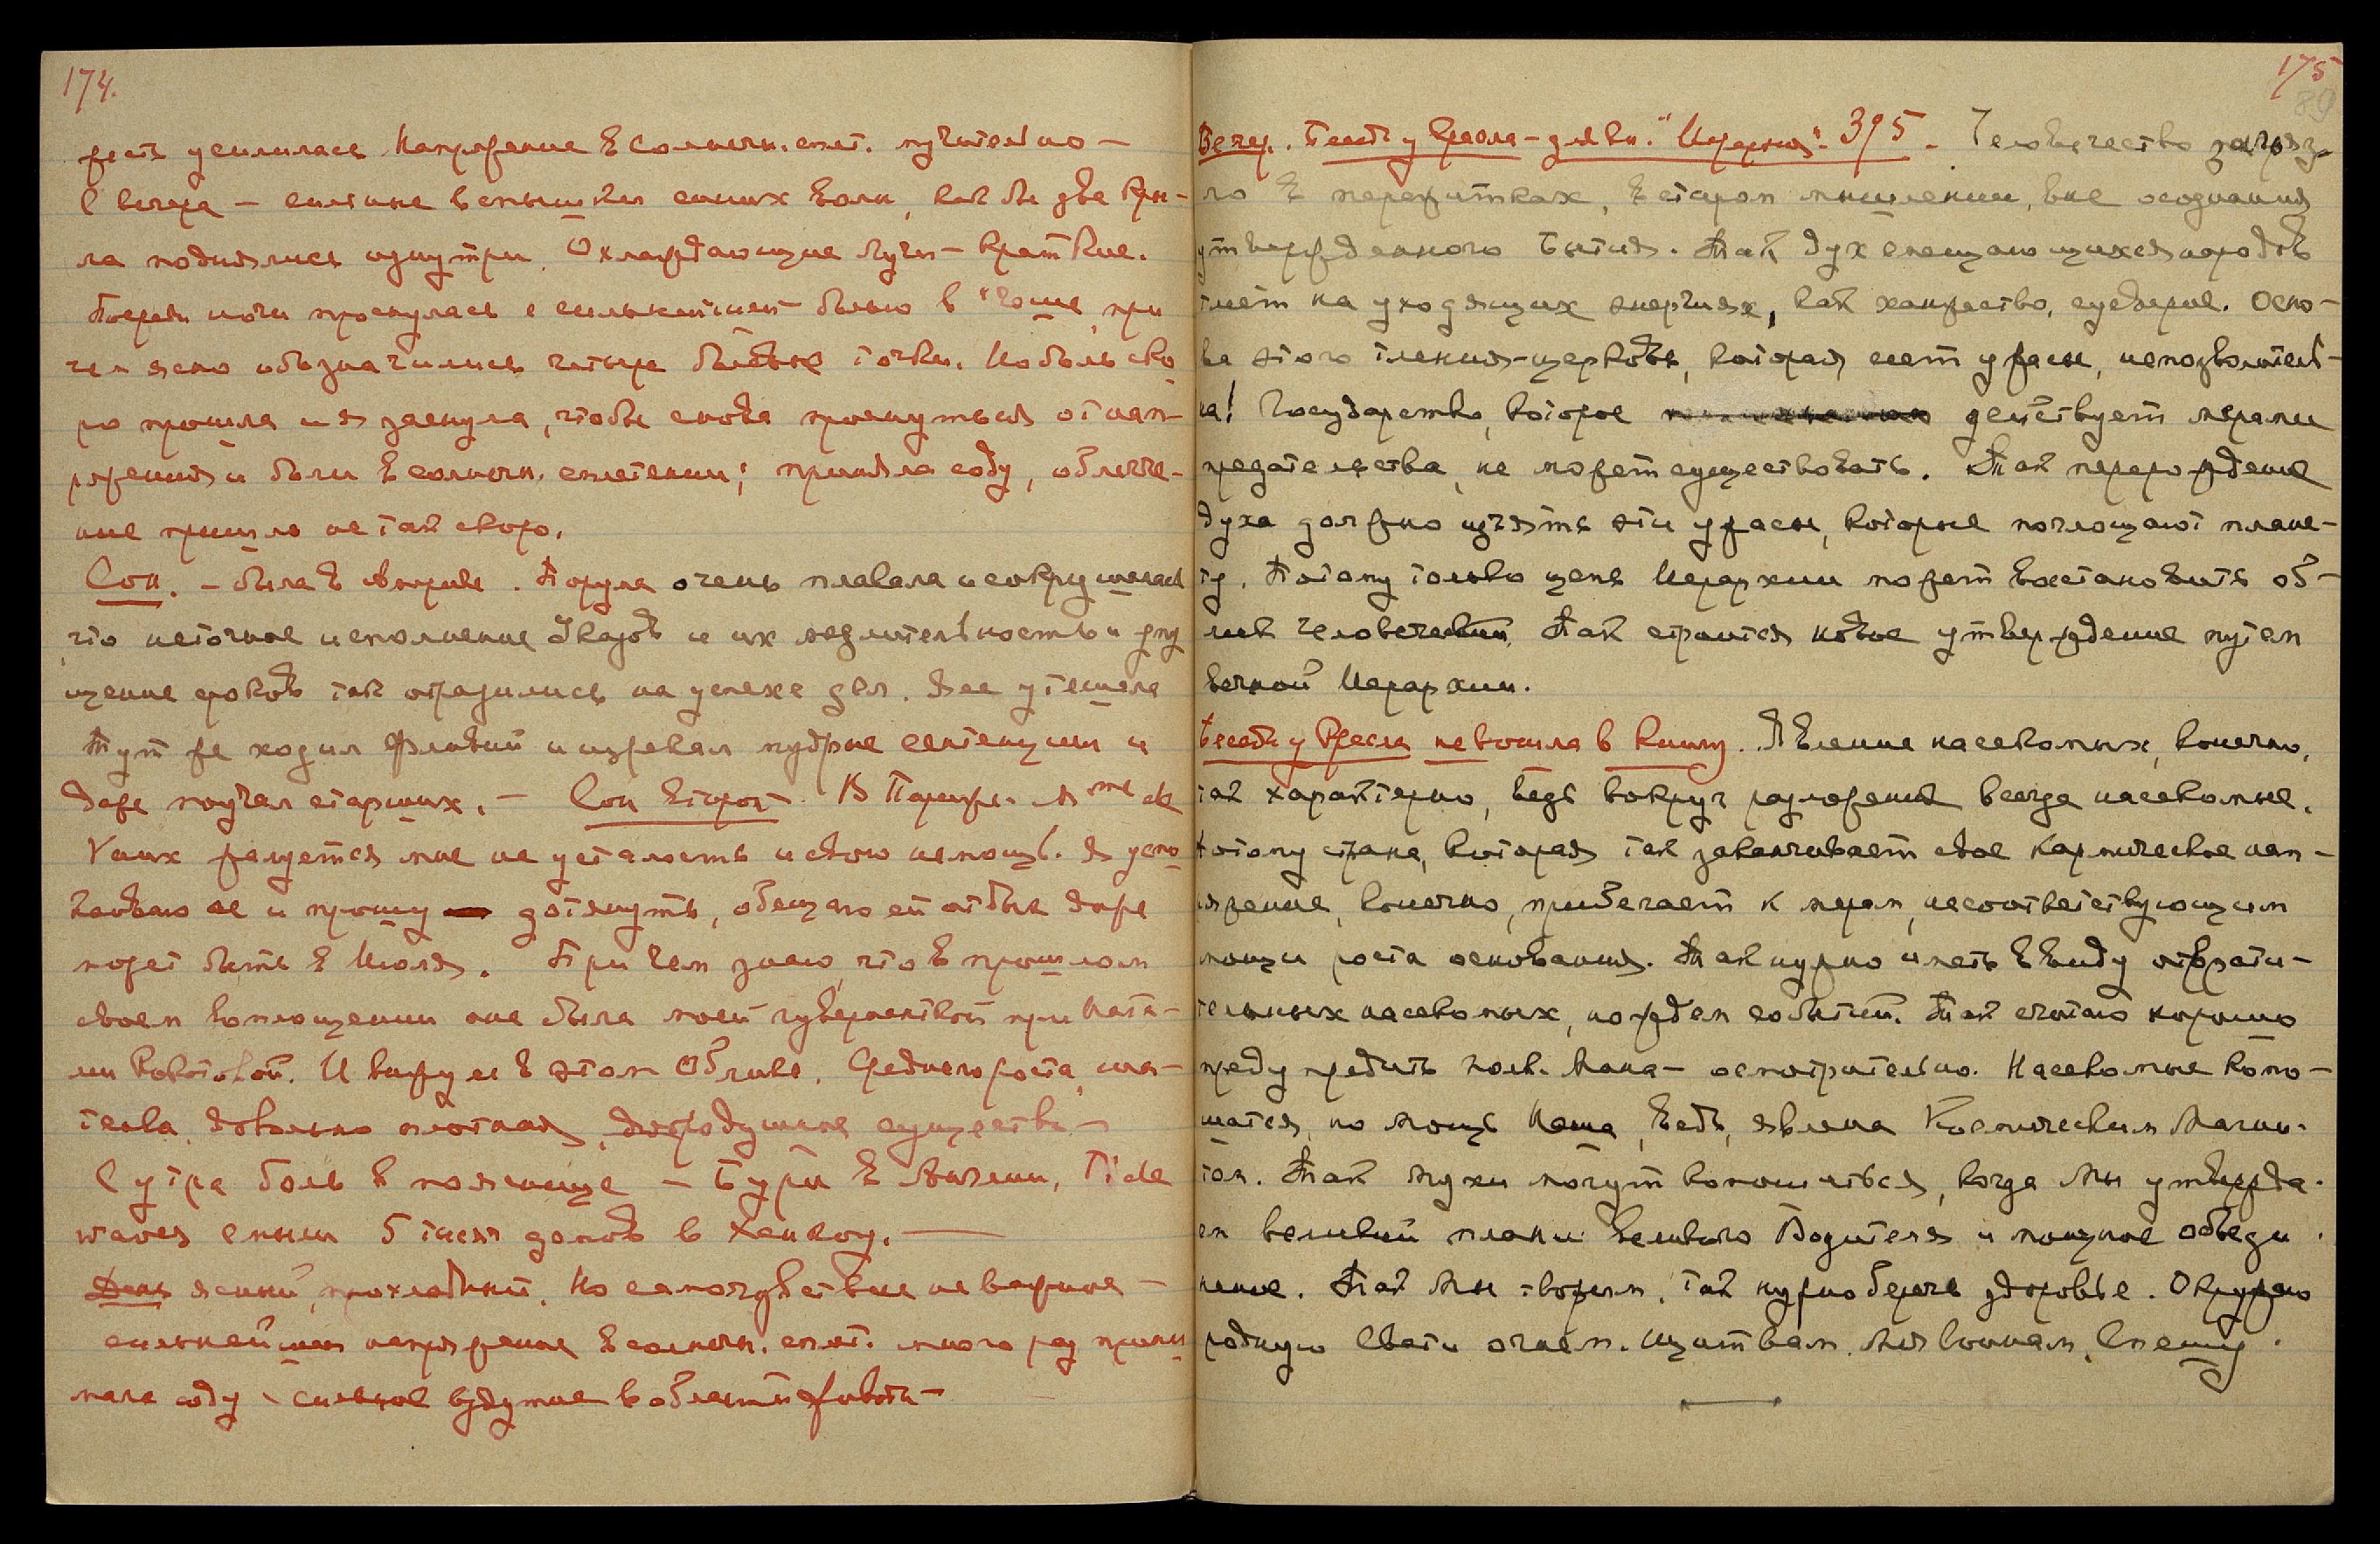 174.
жесть усилилась Напряжение в солнечн. сплет. мучительно –
С вечера – сильные вспышки синих волн, как бы две кры-
ла поднялись изнутри. Охлаждающие лучи – краткие.
Посреди ночи проснулась с сильнейшей болью в "чаше", при
чем ясно обозначились четыре болевые точки. Но боль ско
ро прошла и я заснула, чтобы снова проснуться от нап-
ряжения и боли в солнечн. сплетении; приняла соду, облегче-
ние пришло не так скоро.
Сон. – была в Америке. Порума очень плакала и сокрушалась
что неточное исполнение Указов и их медлительность и упу
щение сроков так отразились на успехе дел. Я ее утешала
Тут же ходил Флавий и изрекал мудрые сентенции и
даже поучал старших. – Сон второй. В Париже. М me de
Vaux жалуется мне на усталость и свою немощь. Я успо
каиваю ее и прошу дотянуть, обещаю ей отдых даже
может быть в Июле. При чем знаю, что в прошлом
своем воплощении она была моей гувернанткой при Ната-
ли Роковой. И вижу ее в этом Облике. Среднего роста, ша-
тенка, довольно плотная, добродушное существо –
С утра боль в пояснице – Буря в Англии, Tide
waves смыли 5 тысяч домов в Ханкоу. –
День ясный, прохладный. Но самочувствие не важное –
сильнейшее напряжение в солнечн. сплет. много раз прини
мала соду – сильное вздутие в области живота –
175
89
Вечер. Беседа у Кресла – для кн. "Иерархия". 395. Человечество загряз-
ло в пережитках, в старом мышлении, вне осознания
утвержденного Бытия. Так дух смещающихся народов
тлеет на уходящих энергиях, как ханжество, суеверие. Осно-
ва этого тления – церковь, которая сеет ужасы, непозволитель-
на! Государство, которое действует мерами
предательства, не может существовать. Так перерождение
духа должно изъять эти ужасы, которые поглощают плане-
ту. Потому только цепь Иерархии может восстановить об-
лик человеческий. Так строится новое утверждение путем
вечной Иерархии.
Беседа у Кресла не вошла в Книгу. Явление насекомых, конечно,
так характерно, ведь вокруг разложения всегда насекомые.
Потому страна, которая так заканчивает свое кармическое нап-
ряжение, конечно, прибегает к мерам, несоответствующим
мощи роста основания. Так нужно иметь в виду отврати-
тельных насекомых, но ждем событий. Так считаю хорошо
предупредить полк. Мана – осмотрительно. Насекомые копо-
шатся, но мощь Наша, ведь, явлена Космическим Магни-
том. Так мухи могут копошиться, когда Мы утвержда-
ем великий планы Великого Водителя и мощное объеди
нение. Так Мы творим, так нужно беречь здоровье. Окружаю
родную Свати огнем. Щит вам. Мя воинам. Спешу.